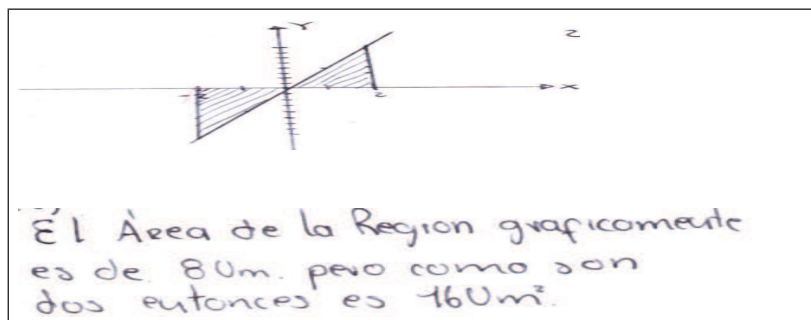 Y
2
-2
2
X
El Área de la Region graficamente
es de 8 Um. pero como son
dos entonces es 16 Um².